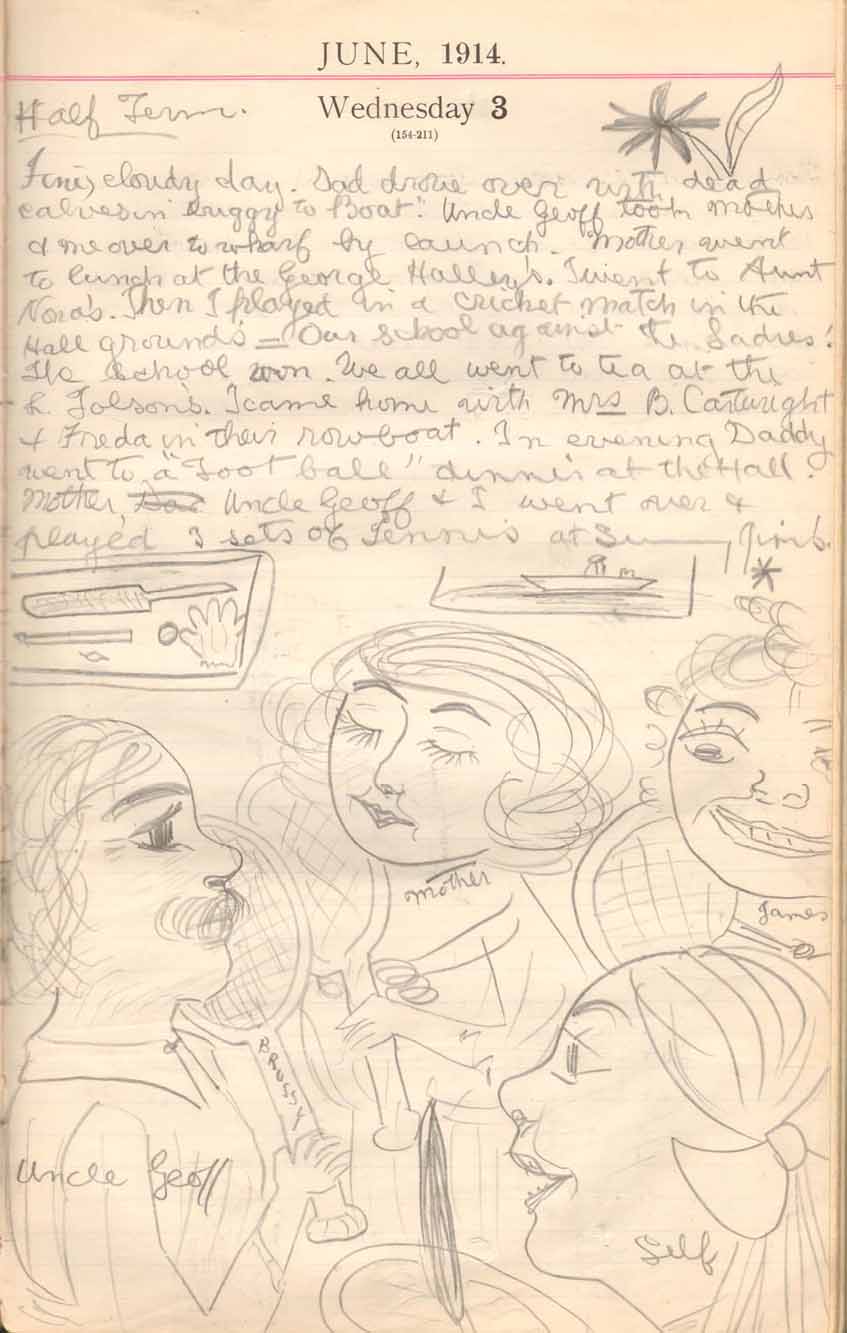 JUNE, 1914.
Half Term.
Wednesday 3
(154-211)
Fine, cloudy day. Dad drove over with dead
calves in buggy to Boat! Uncle Geoff took mother
& me over to wharf by launch. Mother went
to lunch at the George Halley's. I went to Aunt
Nora's. Then I played in a cricket match in the
Hall grounds = Our school against the Ladies!
The school won. We all went to tea at the
L. Tolson's. I came home with Mrs B. Cartwright
& Freda in their rowboat. In evening Daddy
went to a "Foot ball" dinner at the Hall.
Mother, Uncle Geoff & I went over &
played 3 sets of Tennis at
Mother
James
BRUSSY
Uncle Geoff
Self